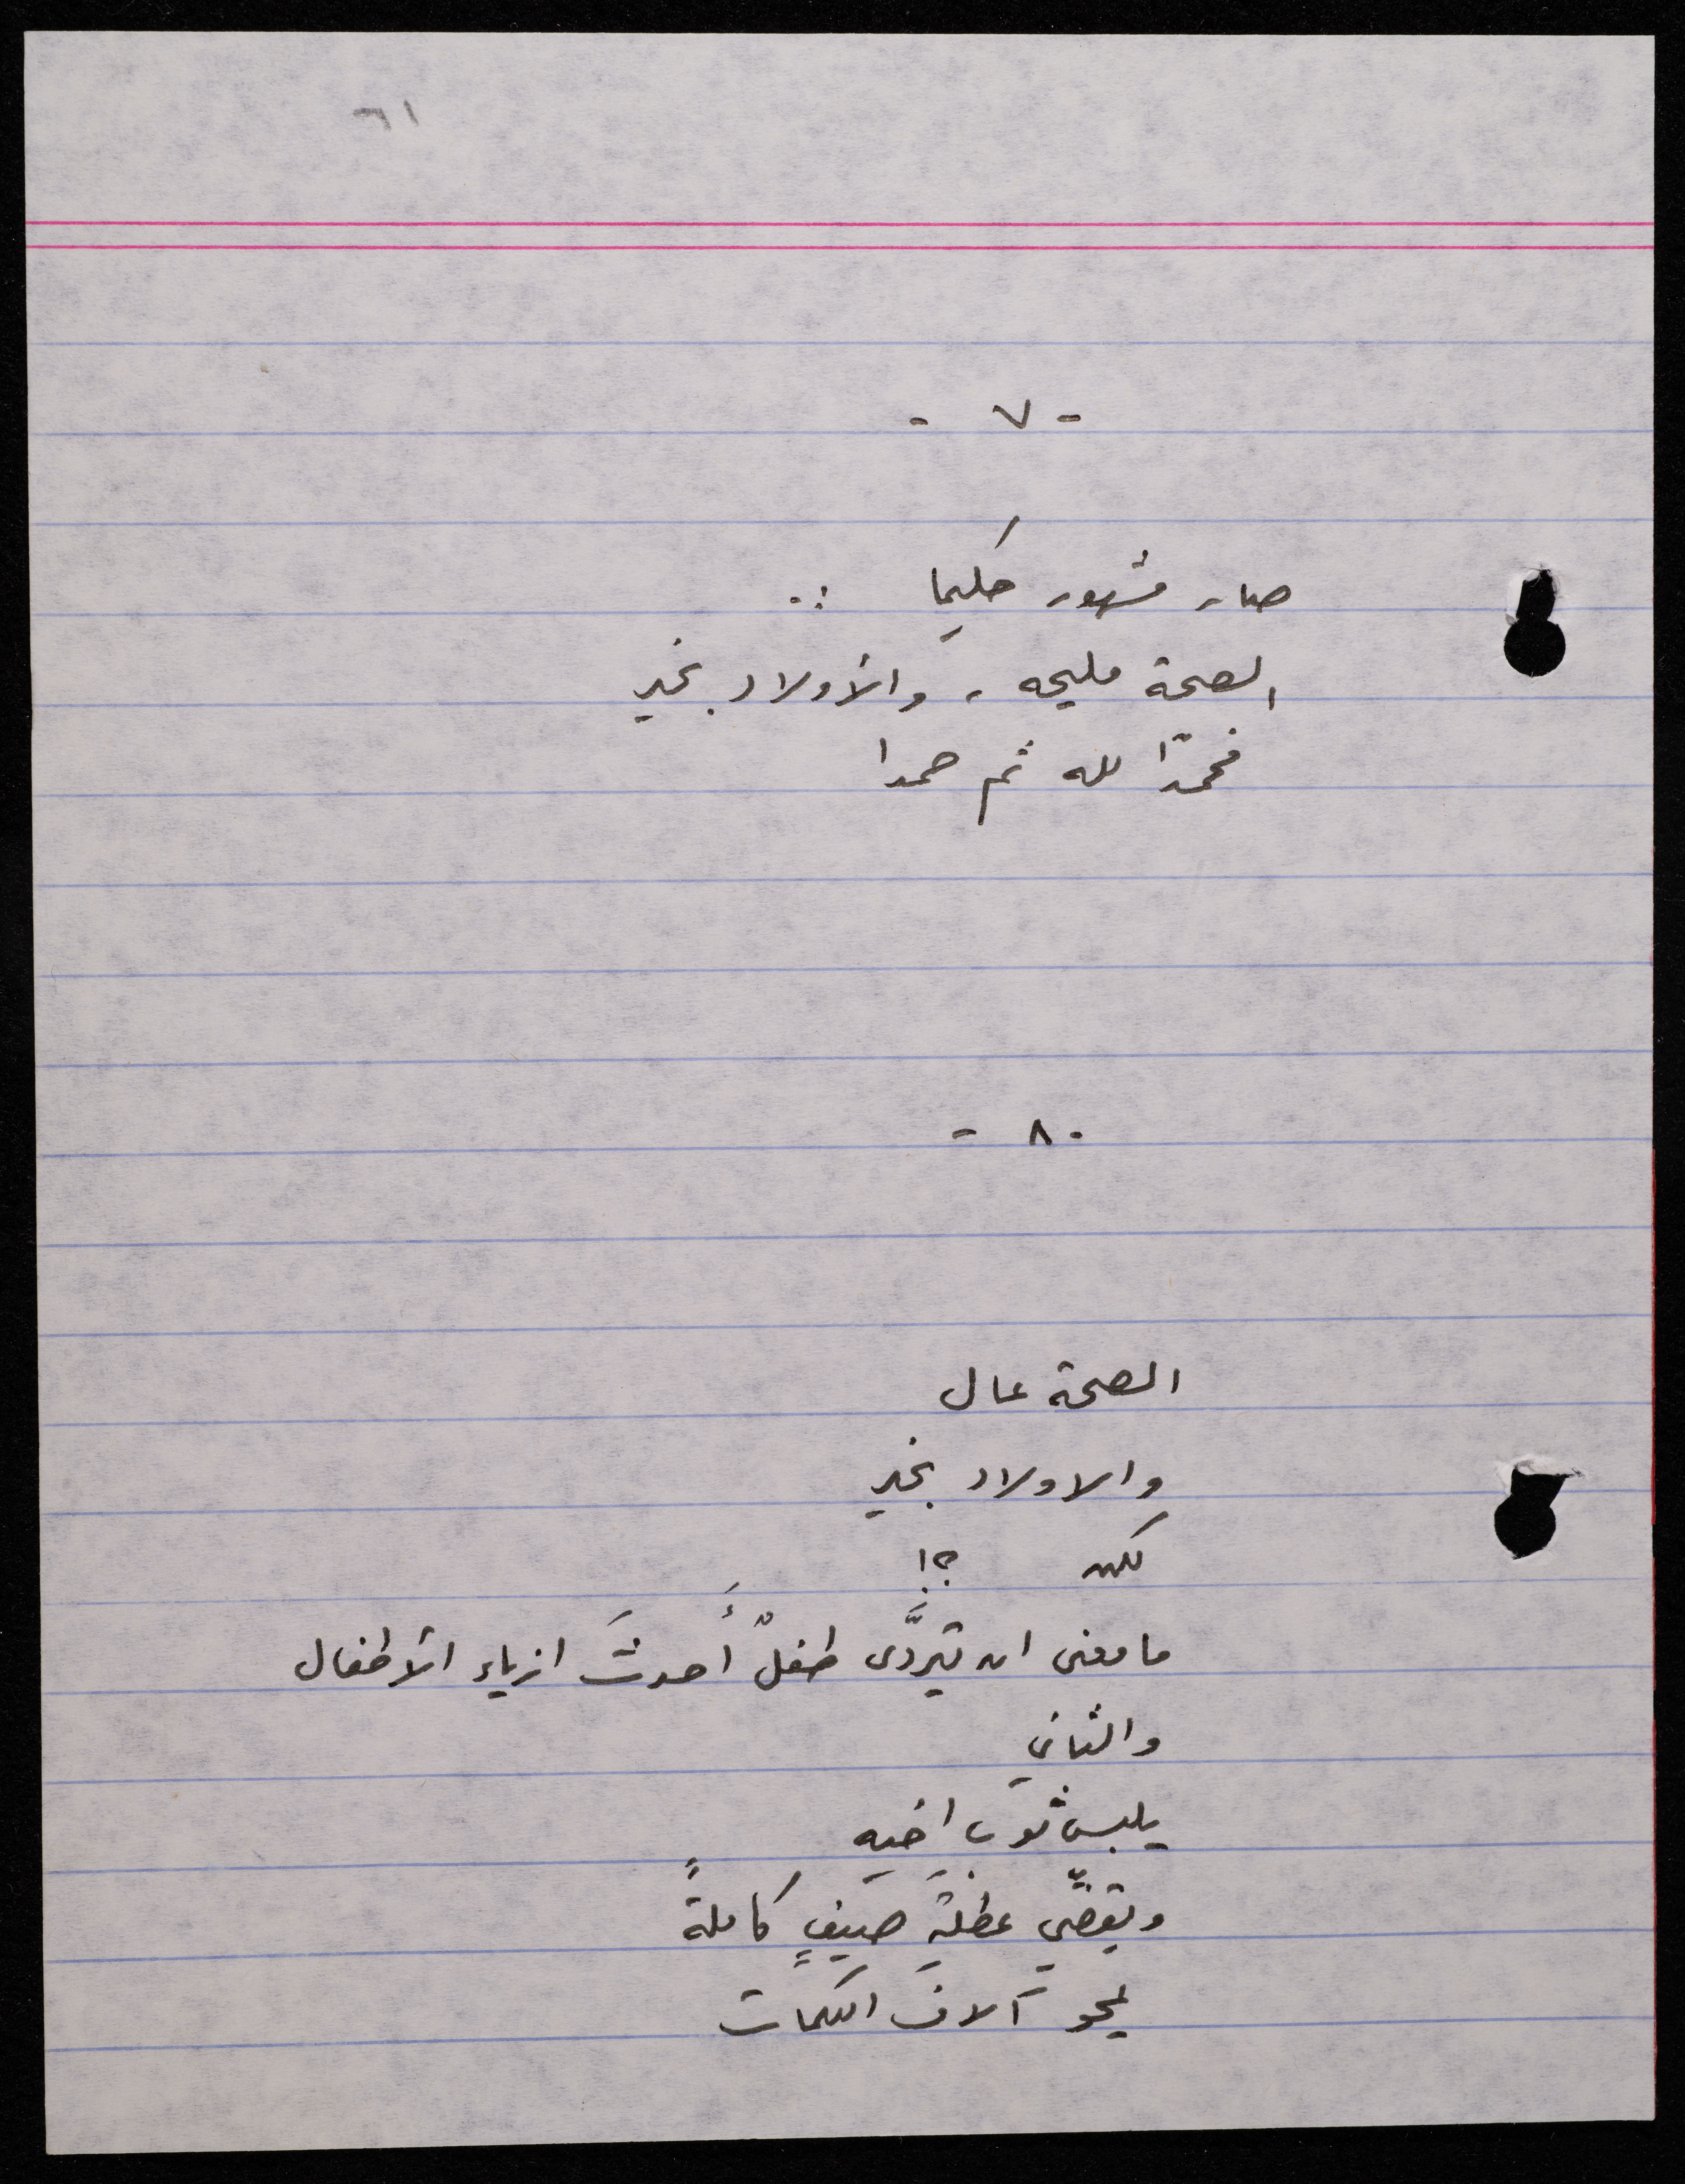 ٦١
- ٧ -
صار مشهور حكيما :.
الصحة مليحه ، والأولاد بخير
فحمدًا لله ثم حمدا
- ٨ -
الصحة عال
والاولاد بخير
لكن ؟!
ما معنى ان يتردَّى طفلٌ أحدثَ ازياء الأطفال
والثاني
يلبس ثوب اخيه
ويقضّي عطلةَ صيفٍ كاملةً
يمحو آلافَ الكلمات